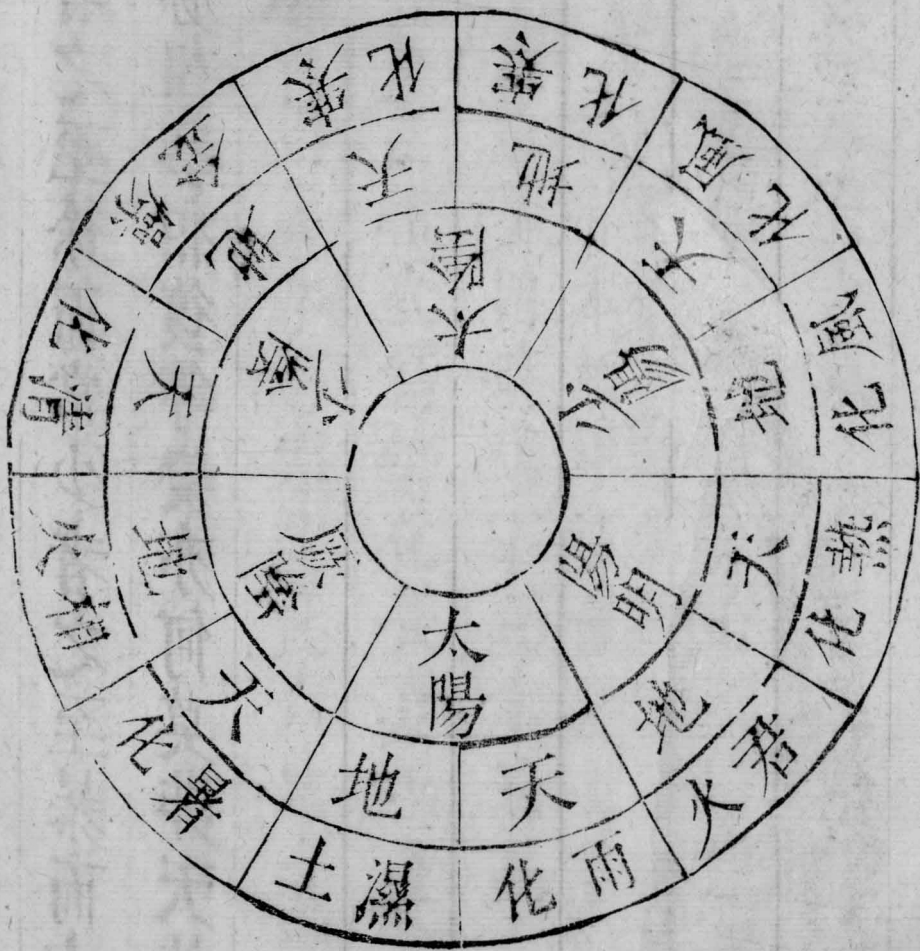 太陽
厥陰
少陰
太陰
少陽
陽明
天
地
天
地
天
地
天
地
天
地
天
地
雨化
濕土
暑化
相火
清化
燥金
寒化
寒化
風化
風化
熱化
君火